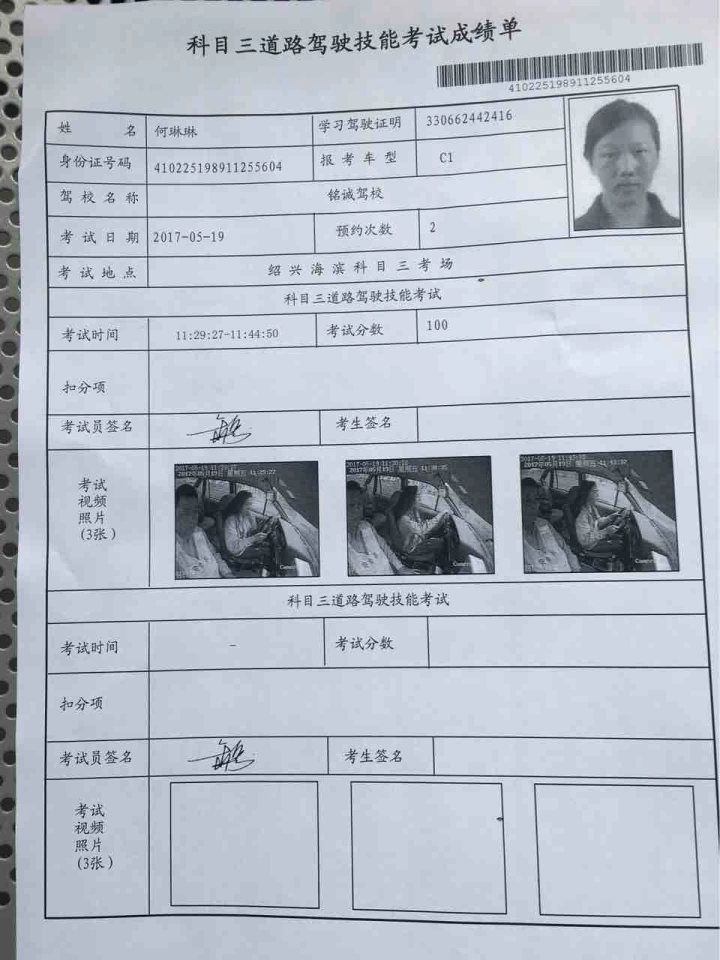 科目三道路驾驶技能考试成绩单
410225198911255604
姓名 何琳琳 学习驾驶证明 330662442416
身份证号码 410225198911255604 报考车型 C1
驾校名称 铭诚驾校
考试日期 2017-05-19 预约次数 2
考试地点 绍兴海滨科目三考场
科目三道路驾驶技能考试
考试时间 11:29:27-11:44:50 考试分数 100
扣分项
考试员签名 考生签名
考试
视频
照片
(3张)
科目三道路驾驶技能考试
考试时间 - 考试分数
扣分项
考试员签名 考生签名
考试
视频
照片
(3张)